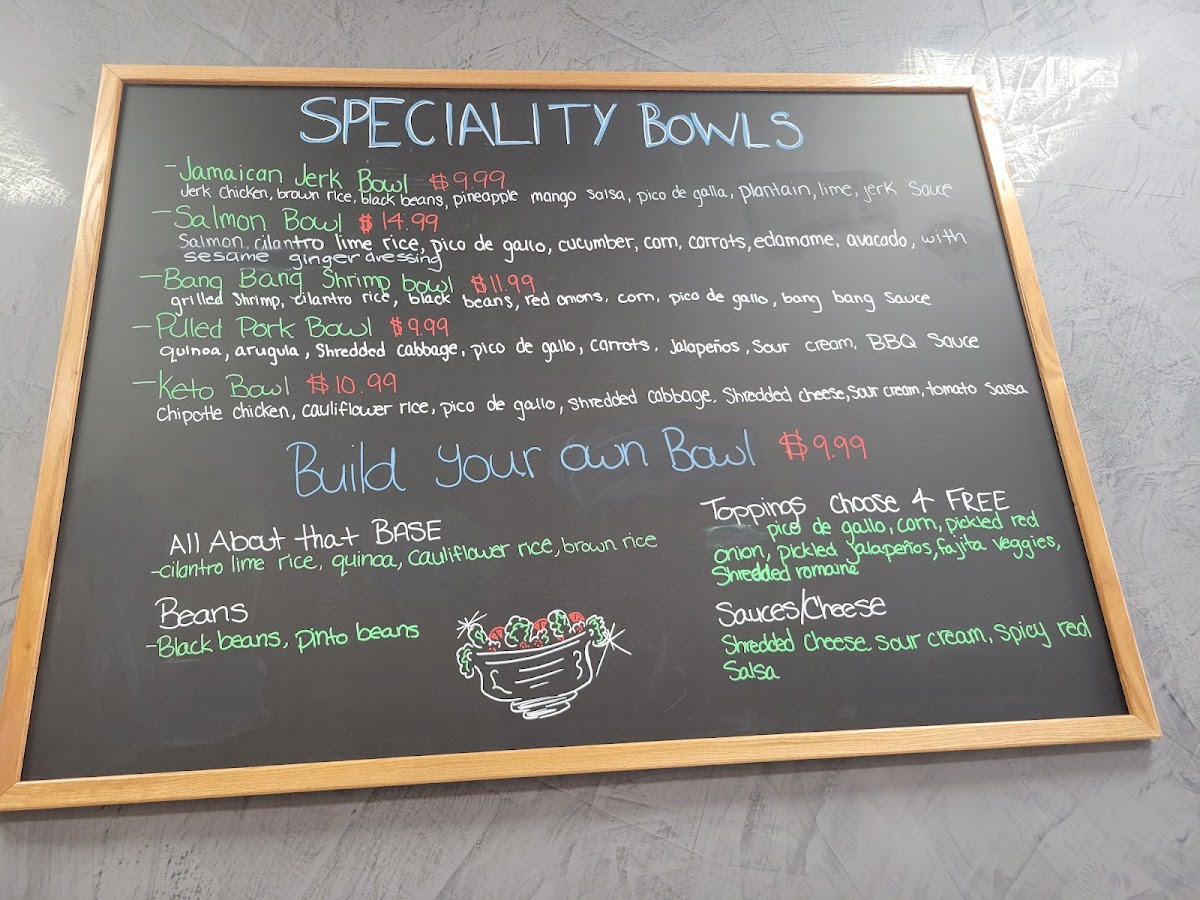 SPECIALITY BOWLS
-Jamaican Jerk Bowl $9.99
Jerk chicken, brown rice, black beans, pineapple mango salsa, pico de galla, plantain, lime, jerk sauce
-Salmon Bowl $14.99
Salmon, cilantro lime rice, pico de gallo, cucumber, corn, carrots, edamame, avacado, with
sesame ginger dressing
-Bang Bang Shrimp bowl $11.99
grilled shrimp, cilantro rice, black beans, red onions, corn, pico de gallo, bang bang sauce
-Pulled Pork Bowl $9.99
quinoa, arugula, shredded cabbage, pico de gallo, carrots, Jalapeños, sour cream, BBQ sauce
-Keto Bowl $10.99
Chipotle chicken, cauliflower rice, pico de gallo, shredded cabbage, shredded cheese, sour cream, tomato salsa
Build your own Bowl $9.99
All About that BASE
-cilantro lime rice, quinoa, cauliflower rice, brown rice
Beans
-Black beans, pinto beans
Toppings choose 4 FREE
pico de gallo, corn, pickled red
onion, pickled jalapeños, fajita veggies,
Shredded romaine
Sauces/Cheese
Shredded cheese, sour cream, spicy red
Salsa